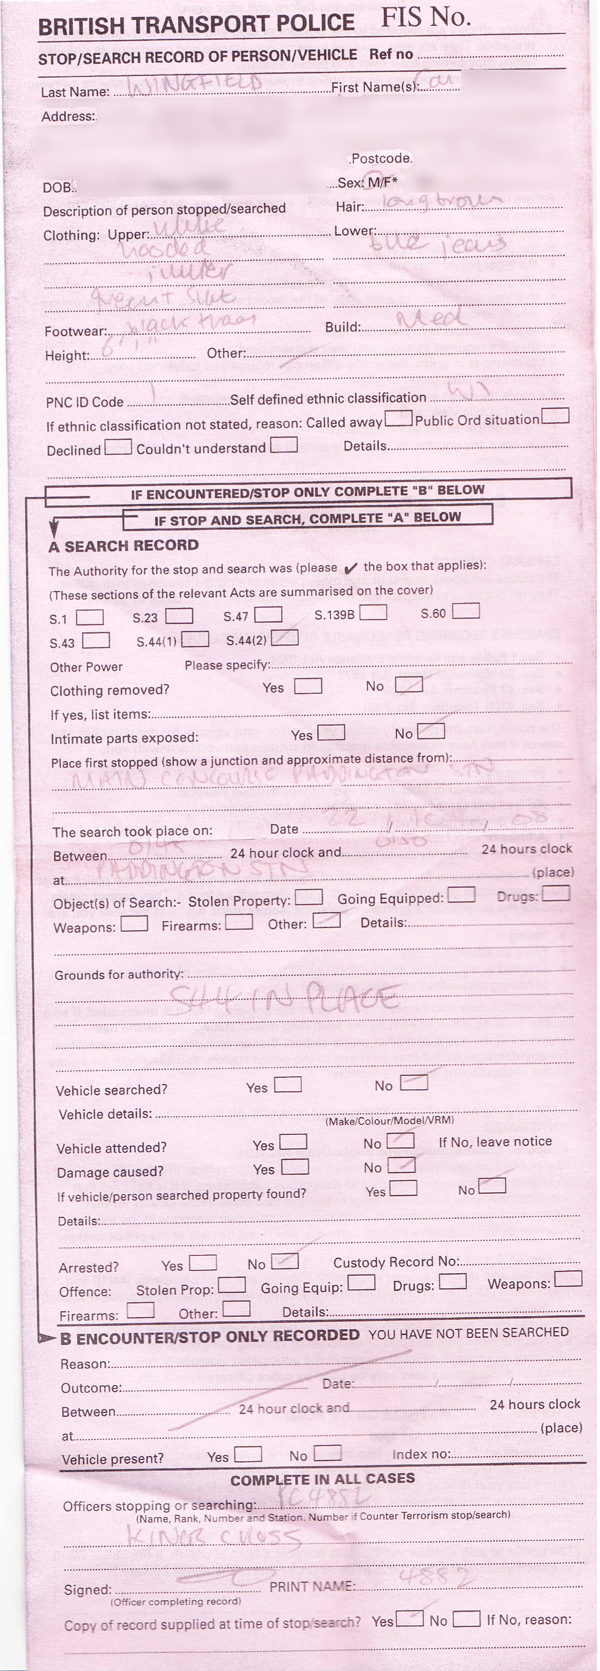 BRITISH TRANSPORT POLICE FIS No.
STOP/SEARCH RECORD OF PERSON/VEHICLE Ref no
Last Name: WINGFIELD First Name(s):
Address:
Postcode.
DOB. Sex: M/F*
Description of person stopped/searched Hair: long brown
Clothing: Upper: white Lower: blue jeans
hooded
jumper
Footwear: black Build: Med
Height: 6'1" Other:
PNC ID Code 1 Self defined ethnic classification W1
If ethnic classification not stated, reason: Called away Public Ord situation
Declined Couldn't understand Details
IF ENCOUNTERED/STOP ONLY COMPLETE "B" BELOW
IF STOP AND SEARCH, COMPLETE "A" BELOW
A SEARCH RECORD
The Authority for the stop and search was (please ✔ the box that applies):
(These sections of the relevant Acts are summarised on the cover)
S.1 S.23 S.47 S.139B S.60
S.43 S.44(1) S.44(2)
Other Power Please specify:
Clothing removed? Yes No
If yes, list items:
Intimate parts exposed: Yes No
Place first stopped (show a junction and approximate distance from):
MAIN CONCOURSE PADDINGTON STN
The search took place on: Date 22 / 10 / 08
Between 0145 24 hour clock and 0150 24 hours clock
at PADDINGTON STN (place)
Object(s) of Search:- Stolen Property: Going Equipped: Drugs:
Weapons: Firearms: Other: Details:
Grounds for authority:
S44 IN PLACE
Vehicle searched? Yes No
Vehicle details:
(Make/Colour/Model/VRM)
Vehicle attended? Yes No If No, leave notice
Damage caused? Yes No
If vehicle/person searched property found? Yes No
Details:
Arrested? Yes No Custody Record No:
Offence: Stolen Prop: Going Equip: Drugs: Weapons:
Firearms: Other: Details:
B ENCOUNTER/STOP ONLY RECORDED YOU HAVE NOT BEEN SEARCHED
Reason:
Outcome: Date: / /
Between 24 hour clock and 24 hours clock
at (place)
Vehicle present? Yes No Index no:
COMPLETE IN ALL CASES
Officers stopping or searching: PC4882
(Name, Rank, Number and Station. Number if Counter Terrorism stop/search)
KINGR CROSS
Signed: PRINT NAME: 4882
(Officer completing record)
Copy of record supplied at time of stop/search? Yes No If No, reason: